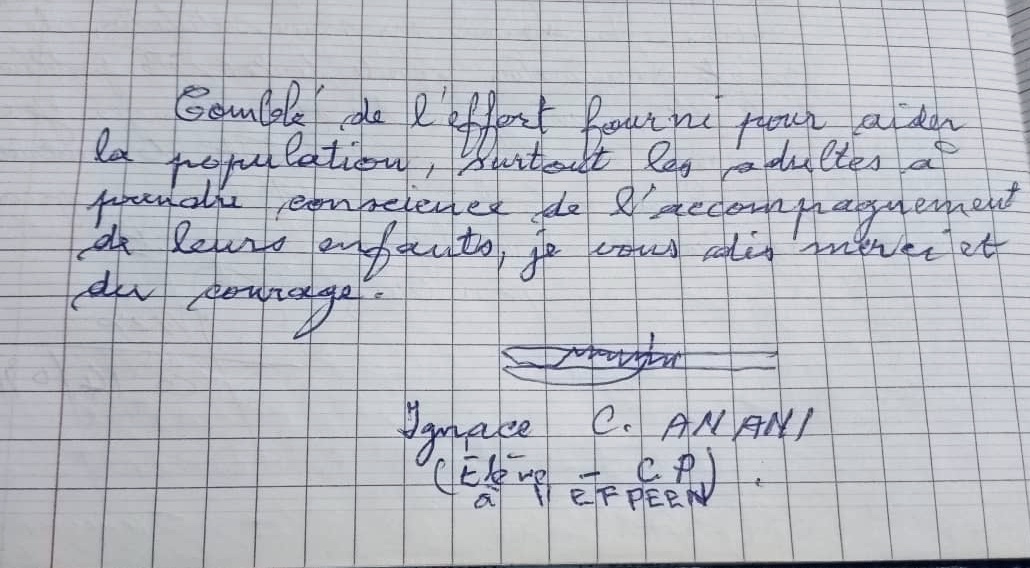 Comblé de l'effort fourni pour aider
la population, surtout les adultes à
prendre conscience de l'accompagnement
de leurs enfants, je vous dis merci et
du courage.
Ignace C. ANANI
(Elève - CP)
à l'EFPEEN